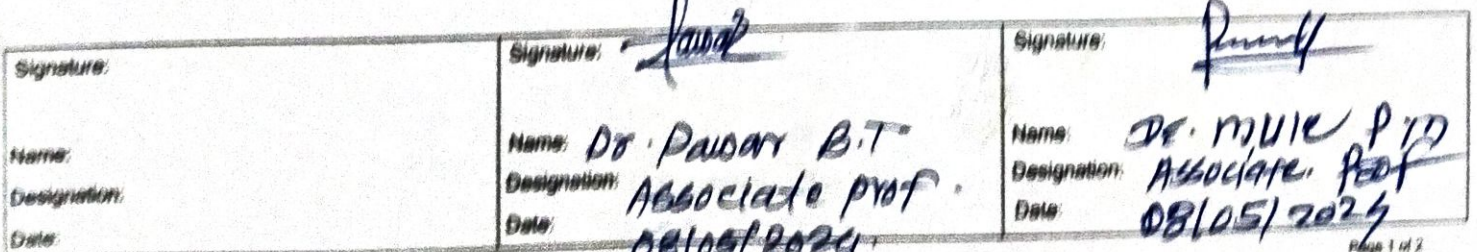 Signature:
Name:
Designation:
Date:
Signature:
Name: Dr. Pawar B.T
Designation: Associate prof.
Date: 08/05/2024
Signature:
Name: Dr. Mule P.M
Designation: Associate. Prof
Date: 08/05/2024
Page 1 of 2